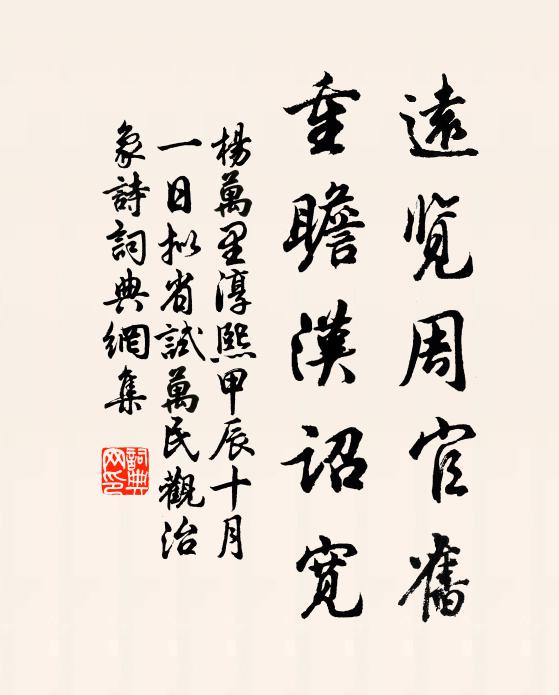 遠覽周官舊
重瞻漢詔寬
楊萬里淳熙甲辰十月
一日拟省試萬民觀治
象詩詞典網集
詞典網印